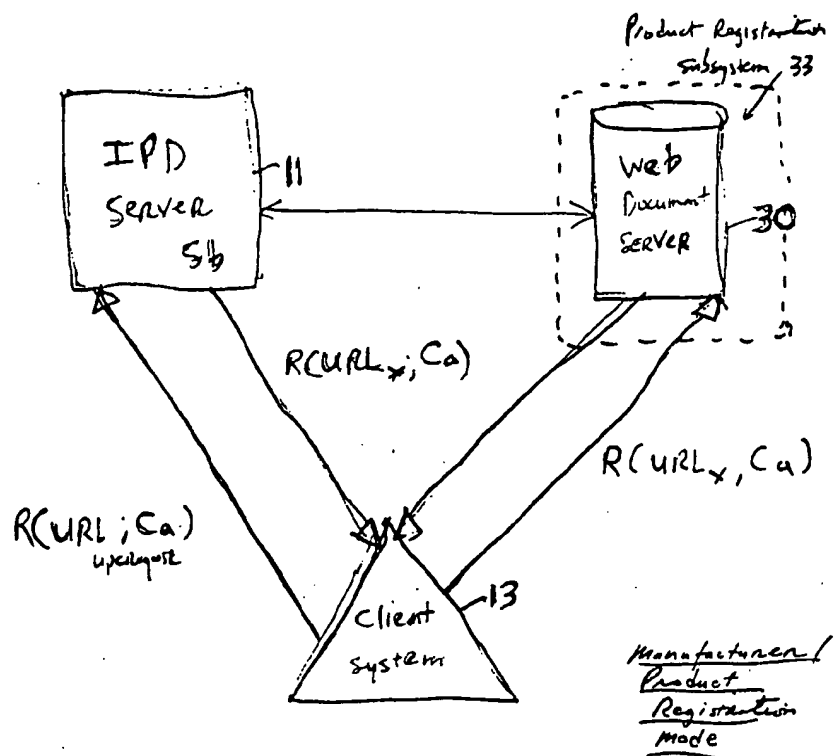 Product Registration
Subsystem 33
IPD
Server
5b
11
Web
Document
Server
30
R(URLx; Ca)
R(URLx, Ca)
R(URL; Ca)
Client
System
13
Manufacturer/
Product
Registration
mode